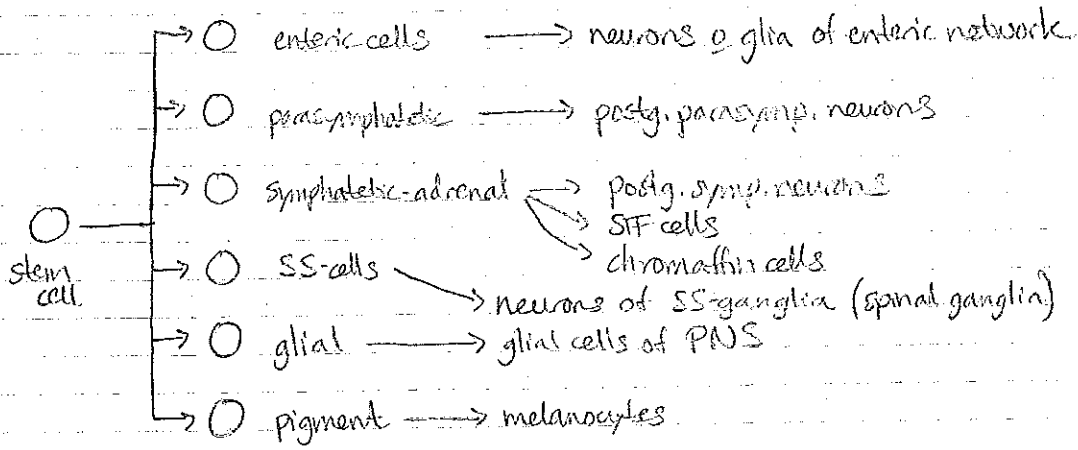 enteric cells → neurons o glia of enteric network
parasymphatetic → postg. parasymp. neurons
symphatetic-adrenal → postg. symp. neurons
SIF cells
chromaffin cells
stem cell
SS-cells → neurons of SS-ganglia (spinal ganglia)
glial → glial cells of PNS
pigment → melanocytes